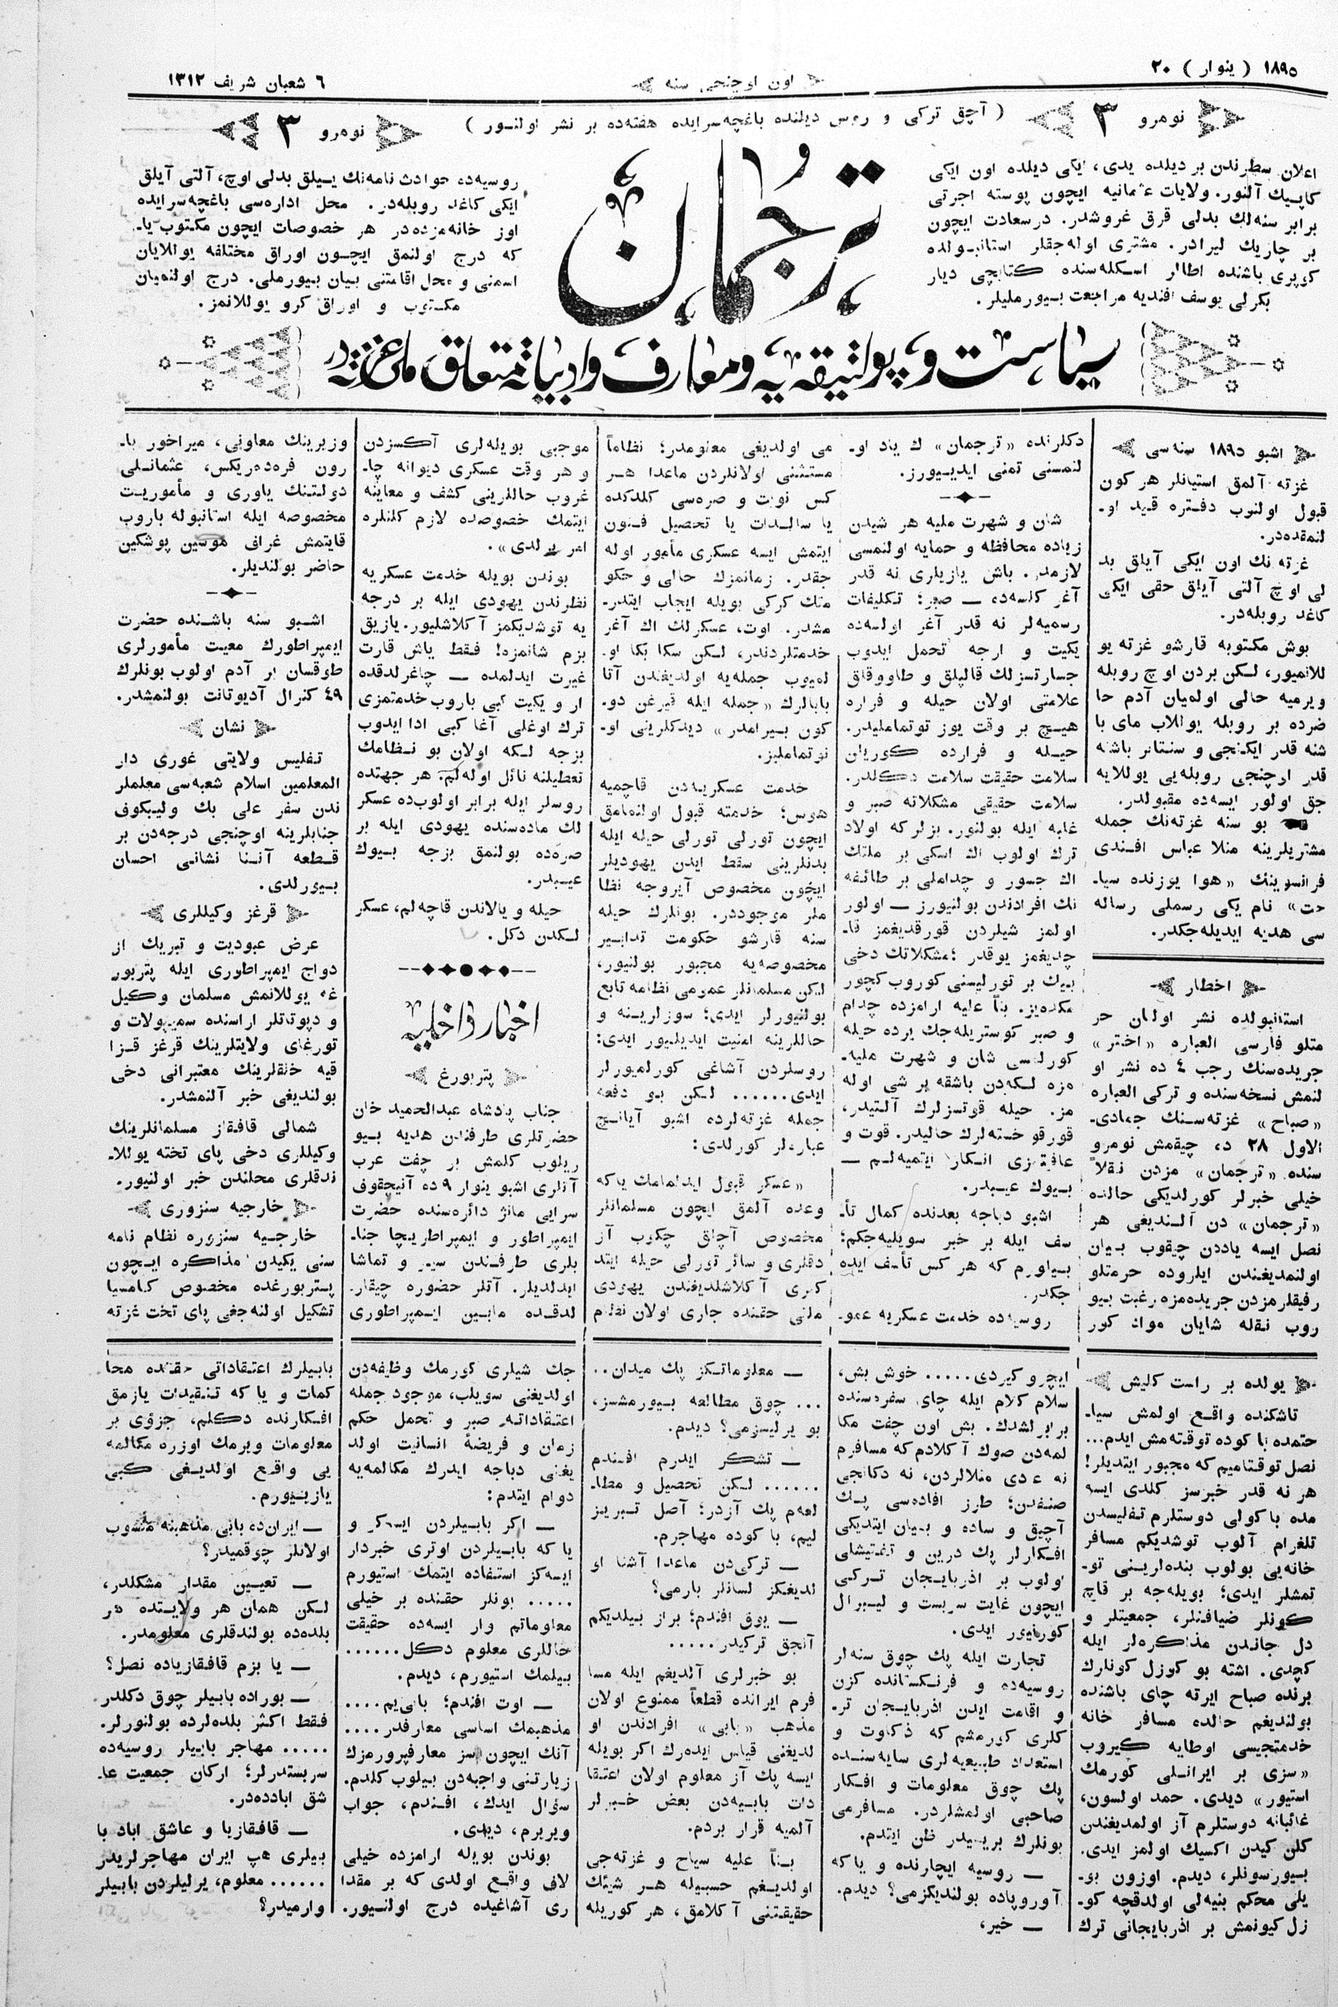 ١٨٩٥ ( ینوار ) ٢٠
اون اوچنجی سنه
٦ شعبان شریف ١٣١٢
نومرو ٣
( آچق ترکی و روس دیلنده باغچه‌سرایده هفته‌ده بر نشر اولنور )
نومرو ٣
اعلان سطرندن بر دیلده یدی، ایکی دیلده اون ایکی
کاپیك آلنور. ولایات عثمانیه ایچون پوسته اجرتی
برابر سنه‌لك بدلی قرق غروشدر. درسعادت ایچون
بر چاریك لیرادر. مشتری اوله‌جقلر استانبولده
کوپری باشنده اطلار اسکله‌سنده کتابچی دیار
بکرلی یوسف افندیه مراجعت بیورملیلر.
ترجمان
روسیه‌ده حوادث نامه‌نك ییلق بدلی اوچ، آلتی آیلق
ایکی کاغد روبله‌در. محل اداره‌سی باغچه‌سرایده
اوز خانه‌مزده‌در هر خصوصات ایچون مکتوب یا-
که درج اولنمق ایچون اوراق مختلفه یوللایان
اسمنی و محل اقامتنی بیان بیورملی. درج اولنمیان
مکتوب و اوراق کرو یوللانمز.
سیاست و پولتیقه‌یه و معارف و ادبیاته متعلق ملی غزته‌در
اشبو ١٨٩٥ سنه سی
غزته آلمق استیانلر هر کون
قبول اولنوب دفتره قید او-
لنمقده‌در.
غزته نك اون ایکی آیلق بد
لی اوچ آلتی آیلق حقی ایکی
کاغد روبله‌در.
بوش مکتوبه قارشو غزته یو
للانمیور، لکن بردن اوچ روبله
ویرمیه حالی اولمیان آدم حا
ضرده بر روبله یوللاب مای با
شنه قدر ایکنجی و سنتابر باشنه
قدر اوچنجی روبله‌یی یوللایه
جق اولور ایسه‌ده مقبولدر.
بو سنه غزته‌نك جمله
مشتریلرینه منلا عباس افندی
فرانسوینك «هوا یوزنده سیا-
حت» نام یکی رسملی رساله
سی هدیه ایدیله‌جکدر.
اخطار
استانبولده نشر اولنان حر
متلو فارسی العباره «اختر»
جریده‌سنك رجب ٤ ده نشر او
لنمش نسخه‌سنده و ترکی العباره
«صباح» غزته‌سنك جمادی-
الاول ٢٨ د، چیقمش نومرو
سنده «ترجمان» مزدن نقلاً
خیلی خبرلر کورلدیکی حالده
«ترجمان» دن آلندیغی هر
نصل ایسه یاددن چیقوب بیان
اولنمدیغندن ایلروده حرمتلو
رفیقلرمزدن جریده‌مزه رغبت بیو
روب نقله شایان مواد کور
دکلرنده «ترجمان» ك یاد او-
لنمسنی تمنی ایدیورز.
شان و شهرت ملیه هر شیدن
زیاده محافظه و حمایه اولنمسی
لازمدر. باش یازیلری نه قدر
آغر کلسه‌ده — صبر؛ تکلیفات
رسمیه‌لر نه قدر آغر اولسه‌ده
یکیت و ارجه تحمل ایدوب
جسارتسزلك قالپلق و طاووقلق
علامتی اولان حیله و فراره
هیچ بر وقت یوز توتماملیدر.
حیله و فرارده کوریلان
سلامت حقیقت سلامت دکلدر.
سلامت حقیقی مشکلاته صبر و
غلبه ایله بولنور. بزلرکه اولاد
ترك اولوب اك اسکی بر ملتك
اك جسور و چداملی بر طائفه
نك افرادندن بولنیورز — اولور
اولمز شیلردن قورقدیغمز قا-
چدیغمز یوقدر؛ مشکلاتك دخی
بیك بر تورلیسنی کوروب کچور
مکده‌یز. بناً علیه ارامزده چدام
و صبر کوستریله‌جك یرده حیله
کورلمسی شان و شهرت ملیه-
مزه لکه‌دن باشقه بر شی اوله
مز. حیله قوتسزلرك آلتیدر،
قورقو خسته‌لرك حالیدر. قوت و
عافیتمزی انکار ایتمیه‌لم —
بیوك عیبدر.
اشبو دباجه بعدنده کمال تأ-
سف ایله بر خبر سویلیه‌جکم؛
بیلورم که هر کس تأسف ایده
جکدر.
روسیه‌ده خدمت عسکریه عمو-
می اولدیغی معلومدر؛ نظاماً
مستثنی اولانلردن ماعدا هر
کس نوبت و صره‌سی کلدکده
یا سالدات یا تحصیل فنون
ایتمش ایسه عسکری مأمور اوله
جقدر. زمانمزك حالی و حکو
متك کرکی بویله ایجاب ایتدر-
مشدر. اوت، عسکرلك اك آغر
خدمتلردندر، لکن سکا بکا او-
لمیوب جمله‌یه اولدیغندن آتا
بابالرك «جمله ایله قیرغن دو-
کون بیرامدر» دیدکلرینی او-
نوتماملیز.
خدمت عسکریه‌دن قاچمیه
هوس؛ خدمته قبول اولنمامق
ایچون تورلی تورلی حیله ایله
بدنلرینی سقط ایدن یهودیلر
ایچون مخصوص آیروجه نظا
ملر موجوددر. بونلرك حیله
سنه قارشو حکومت تدابیر
مخصوصه‌یه مجبور بولنیور،
لکن مسلمانلر عمومی نظامه تابع
بولنیورلر ایدی؛ سوزلرینه و
حاللرینه امنیت ایدیلیور ایدی:
روسلردن آشاغی کورلمیورلر
ایدی...... لکن بو دفعه
جمله غزته‌لرده اشبو آیانچ
عباره‌لر کورلدی:
«عسکر قبول ایدلمامك یاکه
وعده آلمق ایچون مسلمانلر
مخصوص آچلق چکوب آز
دقلری و سائر تورلی حیله ایتد
کلری آکلاشلدیغندن یهودی
ملتی حقنده جاری اولان نظام
موجبی بویله‌لری آکسزدن
و هر وقت عسکری دیوانه چا-
غروب حاللرینی کشف و معاینه
ایتمك خصوصده لازم کلنلره
امر بیرلدی».
بوندن بویله خدمت عسکریه
نظرندن یهودی ایله بر درجه
یه توشدیکمز آکلاشلیور. یازیق
بزم شانمزه! فقط یاش قارت
غیرت ایدلمده — چاغرلدقده
ار و یکیت کبی باروب خدمتمزی
ترك اوغلی آغا کبی ادا ایدوب
بزجه لکه اولان بو نظامك
تعطیلنه نائل اوله‌لم. هر جهتده
روسلر ایله برابر اولوب‌ده عسکر
لك ماده‌سنده یهودی ایله بر
صره‌ده بولنمق بزجه بیوك
عیبدر.
حیله و یالاندن قاچه‌لم، عسکر
لکدن دکل.
اخبار داخلیه
پتربورغ
جناب پادشاه عبدالحمید خان
حضرتلری طرفندن هدیه بیو
ریلوب کلمش بر چفت عرب
آتلری اشبو ینوار ٩ ده آنیچقوف
سرایی مانژ دائره‌سنده حضرت
ایمپراطور و ایمپراطریچا جنا-
بلری طرفندن سیر و تماشا
ایدلدیلر. آتلر حضوره چیقار-
لدقده مابین ایمپراطوری
وزیرینك معاونی، میراخور با-
رون فره‌ده‌ریکس، عثمانلی
دولتنك یاوری و مأموریت
مخصوصه ایله استانبوله باروب
قایتمش غراف موسین پوشکین
حاضر بولندیلر.
اشبو سنه باشنده حضرت
ایمپراطورك معیت مأمورلری
طوقسان بر آدم اولوب بونلرك
٤٩ کنرال آدیوتانت بولنمشدر.
نشان
تفلیس ولایتی غوری دار
المعلمین اسلام شعبه‌سی معلملر
ندن سفر علی بك ولیبکوف
جنابلرینه اوچنجی درجه‌دن بر
قطعه آننا نشانی احسان
بیورلدی.
قرغز وکیللری
عرض عبودیت و تبریك از
دواج ایمپراطوری ایله پتربور
غه یوللانمش مسلمان وکیل
و دپوتاتلر اراسنده سمیپولات و
تورغای ولایتلرینك قرغز قزا
قیه خلقلرینك معتبرانی دخی
بولندیغی خبر آلنمشدر.
شمالی قافقاز مسلمانلرینك
وکیللری دخی پای تخته یوللا-
ندقلری محلندن خبر اولنیور.
خارجیه سنزوری
خارجیه سنزوره نظام نامه
سنی یکیدن مذاکره ایچون
پتربورغده مخصوص کامسیا
تشکیل اولنه‌جغی پای تخت غزته
یولده بر راست کلیش
تاشکنده واقع اولمش سیا-
حتمده باکوده توقته‌مش ایدم...
نصل توقتامیم که مجبور ایتدیلر!
هر نه قدر خبرسز کلدی ایسه
مده باکولی دوستلرم تفلیسدن
تلغرام آلوب توشدیکم مسافر
خانه‌یی بولوب بنده‌لرینی تو-
تمشلر ایدی؛ بویله‌جه بر قاچ
کونلر ضیافتلر، جمعیتلر و
دل جاندن مذاکره‌لر ایله
کچدی. اشته بو کوزل کونلرك
برنده صباح ایرته چای باشنده
بولندیغم حالده مسافر خانه
خدمتجیسی اوطایه کیروب
«سزی بر ایرانلی کورمك
استیور» دیدی. حمد اولسون،
غائبانه دوستلرم آز اولمدیغندن
کلن کیدن اکسیك اولمز ایدی.
بیورسونلر، دیدم. اوزون بو-
یلی محکم بنیه‌لی اولدقچه کو-
زل کیونمش بر اذربایجانی ترك
ایچرو کیردی..... خوش بش،
سلام کلام ایله چای سفره‌سنده
برابرلشدك. بش اون چفت مکا
لمه‌دن صوك آکلادم که مسافرم
نه عدی منلالردن، نه دکانجی
صنفدن؛ طرز افاده‌سی پك
آچیق و ساده و بیان ایتدیکی
افکارلر پك درین و تفتیشلی
اولوب بر اذربایجان ترکی
ایچون غایت سربست و لیبرال
کورنیور ایدی.
تجارت ایله پك چوق سنه‌لر
روسیه‌ده و فرنکستانده کزن
و اقامت ایدن اذربایجان تر-
کلری کورمشم که ذکاوت و
استعداد طبیعیه‌لری سایه‌سنده
پك چوق معلومات و افکار
صاحبی اولمشلردر. مسافرمی
بونلرك بریسیدر ظن ایتدم.
— روسیه ایچلرنده و یاکه
آوروپاده بولندیکزمی؟ دیدم.
— خیر،
— معلوماتکز پك میدان..
... چوق مطالعه بیورمشسز،
بو یرلیسزمی؟ دیدم.
— تشکر ایدرم افندم
...... لکن تحصیل و مطا-
لعه‌م پك آزدر؛ آصل تبریز
لیم، باکوده مهاجرم.
— ترکی‌دن ماعدا آشنا او
لدیغکز لسانلر بارمی؟
— یوق افندم؛ براز بیلدیکم
آنجق ترکیدر.....
بو خبرلری آلدیغم ایله مسا
فرم ایرانده قطعاً ممنوع اولان
مذهب «بابی» افرادندن او
لدیغنی قیاس ایده‌رك اکر بویله
ایسه پك آز معلوم اولان اعتقا
دات بابیه‌دن بعض خبرلر
آلمیه قرار بردم.
بناً علیه سیاح و غزته‌جی
اولدیغم حسبیله هر شیئك
حقیقتنی آکلامق، هر کوریله
جك شیلری کورمك وظیفه‌دن
اولدیغنی سویلب، موجود جمله
اعتقاداته صبر و تحمل حکم
زمان و فریضهٔ انسانیت اولد
یغنی دباجه ایدرك مکالمه‌یه
دوام ایتدم:
— اکر بابیلردن ایسه‌کز و
یا که بابیلردن اوتری خبردار
ایسه‌کز استفاده ایتمك استیورم
..... بونلر حقنده بر خیلی
معلوماتم وار ایسه‌ده حقیقت
حاللری معلوم دکل......
بیلمك استیورم، دیدم.
— اوت افندم؛ بابی‌یم....
مذهبمك اساسی معارفدر....
آنك ایچون سز معارفپرورمزك
زیارتنی واجبه‌دن بیلوب کلدم.
سؤال ایدك، افندم، جواب
ویربرم، دیدی.
بوندن بویله ارامزده خیلی
لاف واقع اولدی که بر مقدا
ری آشاغیده درج اولنیور.
بابیلرك اعتقاداتی حقنده محا
کمات و یا که تنقیدات یازمق
افکارنده دکلم، جزؤی بر
معلومات ویرمك اوزره مکالمه
یی واقع اولدیغی کبی
یازیورم.
— ایران‌ده بابی مذهبنه منسوب
اولانلر چوقمیدر؟
— تعیین مقدار مشکلدر،
لکن همان هر ولایتده هر
بلده‌ده بولندقلری معلومدر.
— یا بزم قافقازیاده نصل؟
— بوراده بابیلر چوق دکلدر
فقط اکثر بلده‌لرده بولنورلر.
..... مهاجر بابیلر روسیه‌ده
سربستدرلر؛ ارکان جمعیت عا-
شق ابادده‌در.
— قافقازیا و عاشق اباد با
بیلری هپ ایران مهاجرلریدر
...... معلوم، یرلیلردن بابیلر
وارمیدر؟